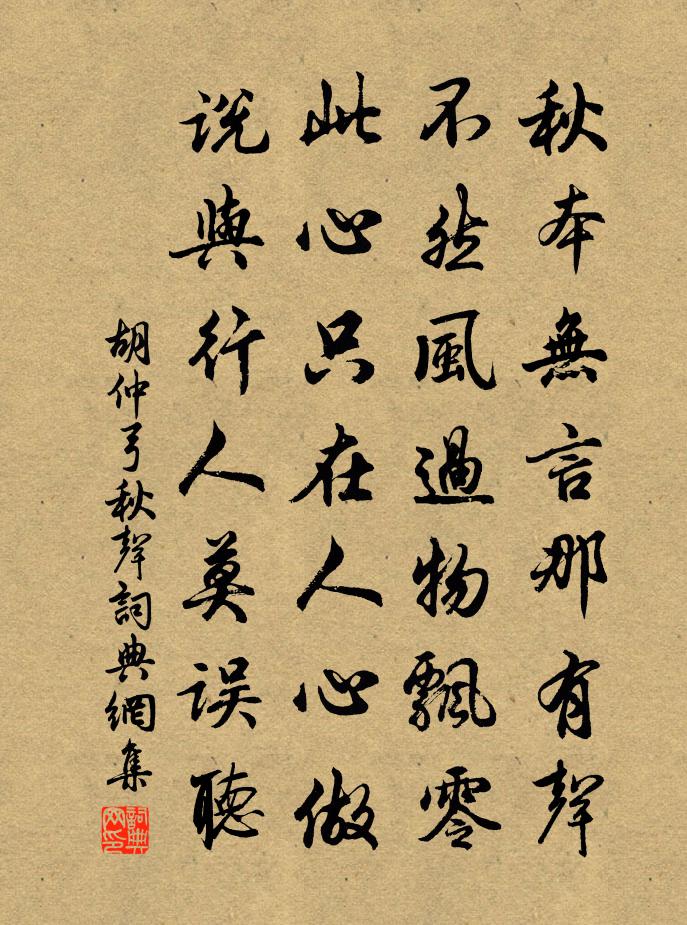 秋本無言那有聲
不然風過物飄零
此心只在人心做
説與行人莫误聽
胡仲弓秋聲詞典網集
詞典网印